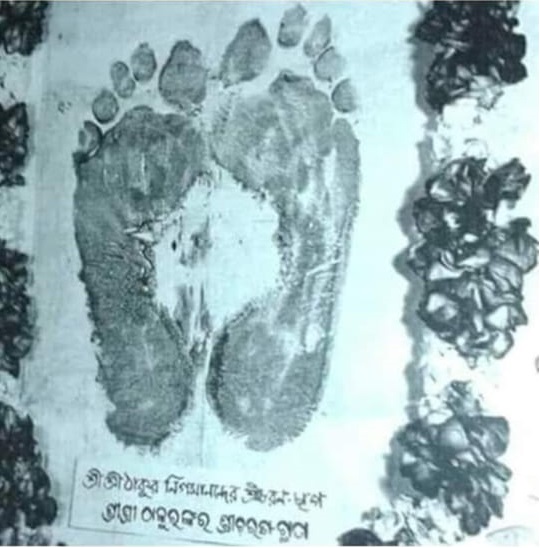 শ্রীশ্রীঠাকুর নিগমানন্দের শ্রীচরণ-ছাপ
ଶ୍ରୀଶ୍ରୀ ଠାକୁରଙ୍କର ଶ୍ରୀଚରଣ-